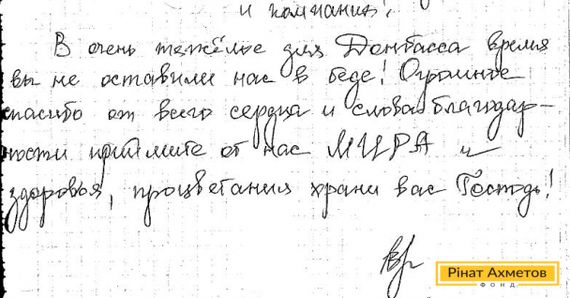 и компания!
В очень тяжёлое для Донбасса время
вы не оставили нас в беде! Огромное
спасибо от всего сердца и слова благодар-
ности примите от нас МИРА и
здоровья, процветания храни вас Господь!
Рінат Ахметов
ФОНД